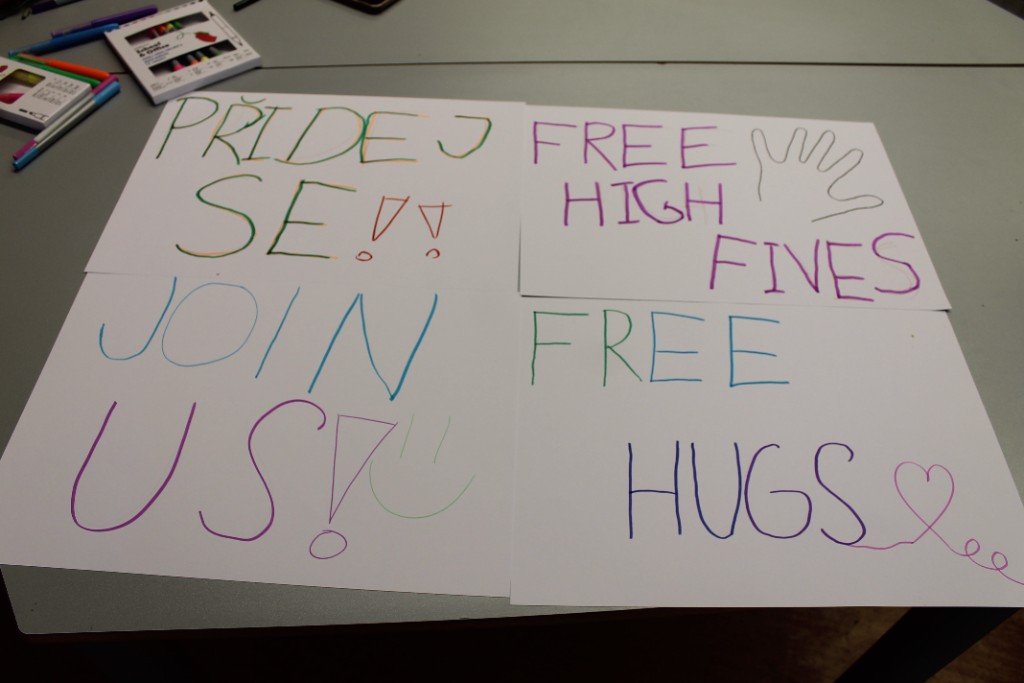 PŘIDEJ
SE!!
FREE
HIGH
FIVES
JOIN
US!
FREE
HUGS